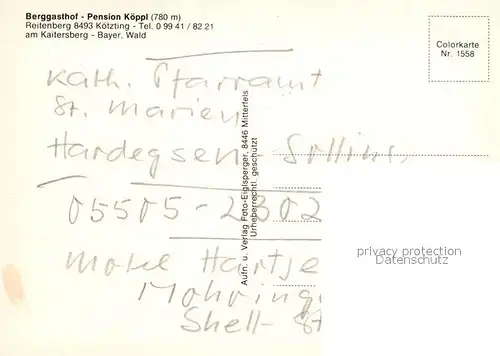 Berggasthof - Pension Köppl (780 m)
Reitenberg 8493 Kötzting - Tel. 0 99 41 / 82 21
am Kaitersberg - Bayer. Wald
Colorkarte
Nr. 1558
Kath. Pfarramt
St. Marien
Hardegsen Solling,
05505-2302
Motel Hartje
Mohring
Shell-St
Aufn. u. Verlag Foto-Eiglsperger, 8446 Mitterfels
Urheberrechtl. geschützt
privacy protection
privacy protection